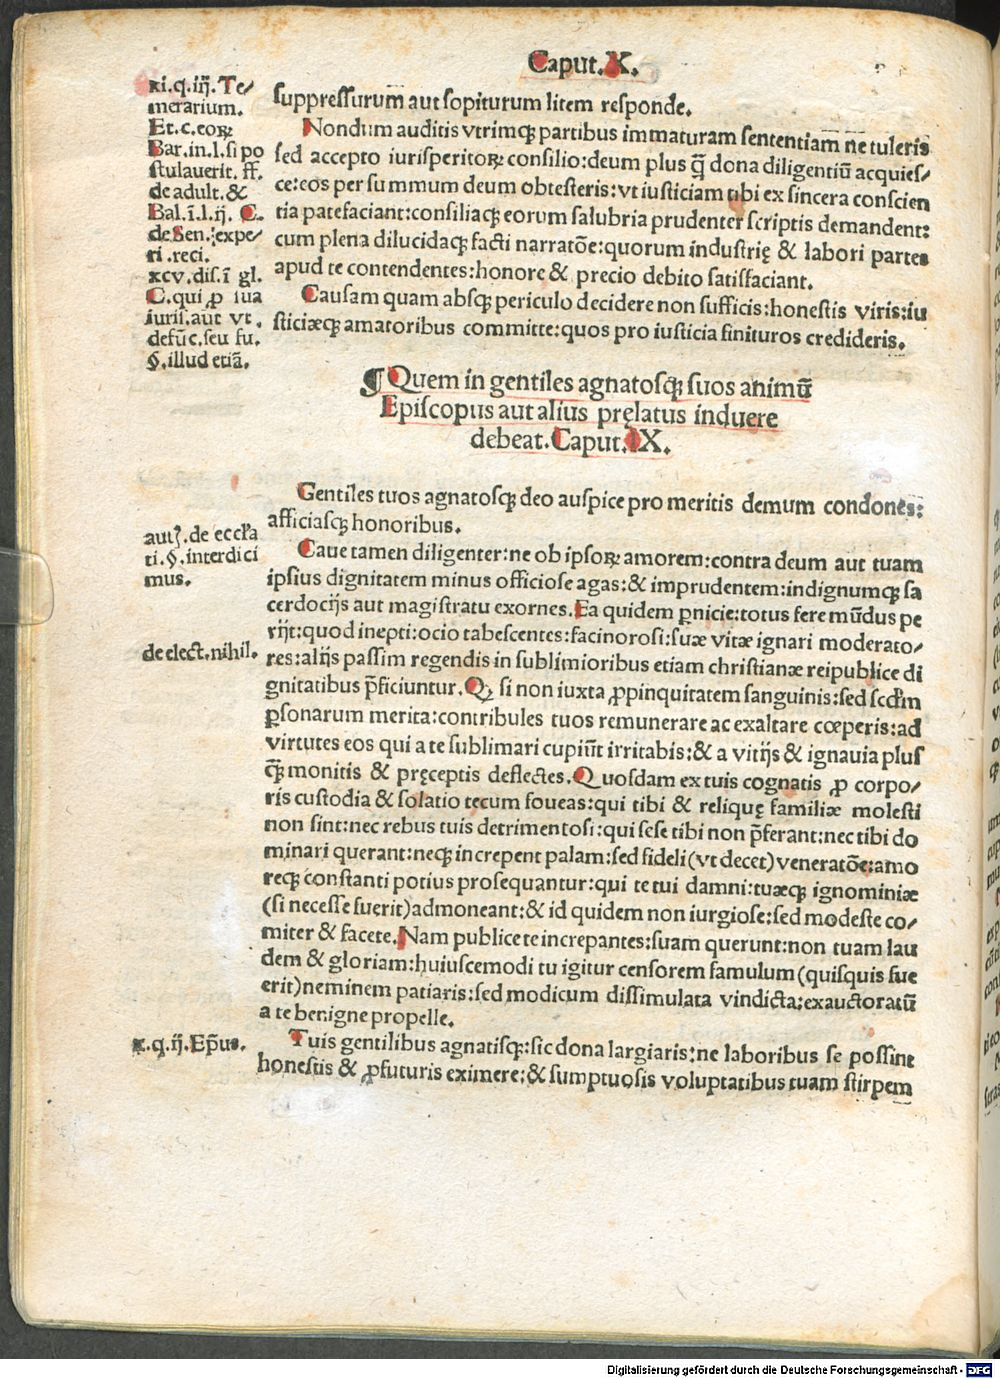 Caput.X.
xi.q.iij.Te/
merarium.
Et.c.eoꝝ
Bar.in.l.si po
stulauerit.ff.
de adult.&
Bal.ī.l.ij. C.
de Sen.;expe/
ri.reci.
xcv.dis.ī gl.
C.qui ꝓ sua
iuris.aut vt.
defūc.seu fu.
§.illud etiā.
suppressurum aut sopiturum litem responde.
Nondum auditis vtrimqꝫ partibus immaturam sententiam ne tuleris
sed accepto iurisperitoꝝ consilio:deum plus q̄ dona diligentiū acquies/
ce:eos per summum deum obtesteris:vt iusticiam tibi ex sincera conscien
tia patefaciant:consiliaqꝫ eorum salubria prudenter scriptis demandent:
cum plena dilucidaqꝫ facti narratōe:quorum industrię & labori partes
apud te contendentes:honore & precio debito satisfaciant.
Causam quam absqꝫ periculo decidere non sufficis:honestis viris:iu
sticiæqꝫ amatoribus committe:quos pro iusticia finituros credideris.
¶ Quem in gentiles agnatosqꝫ suos animū
Episcopus aut alius pręlatus induere
debeat.Caput.IX.
Gentiles tuos agnatosqꝫ deo auspice pro meritis demum condones:
afficiasqꝫ honoribus.
autꝭ.de eccľa
ti.§.interdici
mus.
Caue tamen diligenter:ne ob ipsoꝝ amorem:contra deum aut tuam
ipsius dignitatem minus officiose agas:& imprudentem:indignumqꝫ sa
cerdocijs aut magistratu exornes.Ea quidem ꝑnicie:totus fere mūdus pe
rijt:quod inepti:ocio tabescentes:facinorosi:suæ vitæ ignari moderato/
de elect.nihil.
res:alijs passim regendis in sublimioribus etiam christianæ reipublice di
gnitatibus p̄ficiuntur.Qꝫ si non iuxta ꝓpinquitatem sanguinis:sed scďm
ꝑsonarum merita:contribules tuos remunerare ac exaltare cœperis:ad
virtutes eos qui a te sublimari cupiūt irritabis:& a vitijs & ignauia plus
q̄ monitis & pręceptis deflectes.Quosdam ex tuis cognatis ꝓ corpo/
ris custodia & solatio tecum foueas:qui tibi & reliquę familiæ molesti
non sint:nec rebus tuis detrimentosi:qui sese tibi non p̄ferant:nec tibi do
minari querant:neqꝫ increpent palam:sed fideli(vt decet)veneratōe:amo
reqꝫ constanti potius prosequantur:qui te tui damni:tuæqꝫ ignominiæ
(si necesse fuerit)admoneant:& id quidem non iurgiose:sed modeste co/
miter & facete.Nam publice te increpantes:suam querunt:non tuam lau
dem & gloriam:huiuscemodi tu igitur censorem famulum(quisquis fue
erit)neminem patiaris:sed modicum dissimulata vindicta:exauctoratū
a te benigne propelle.
x.q.ij.Ep̄us.
Tuis gentilibus agnatisqꝫ:sic dona largiaris:ne laboribus se possint
honestis & ꝓfuturis eximere:& sumptuosis voluptatibus tuam stirpem
Digitalisierung gefördert durch die Deutsche Forschungsgemeinschaft - DFG